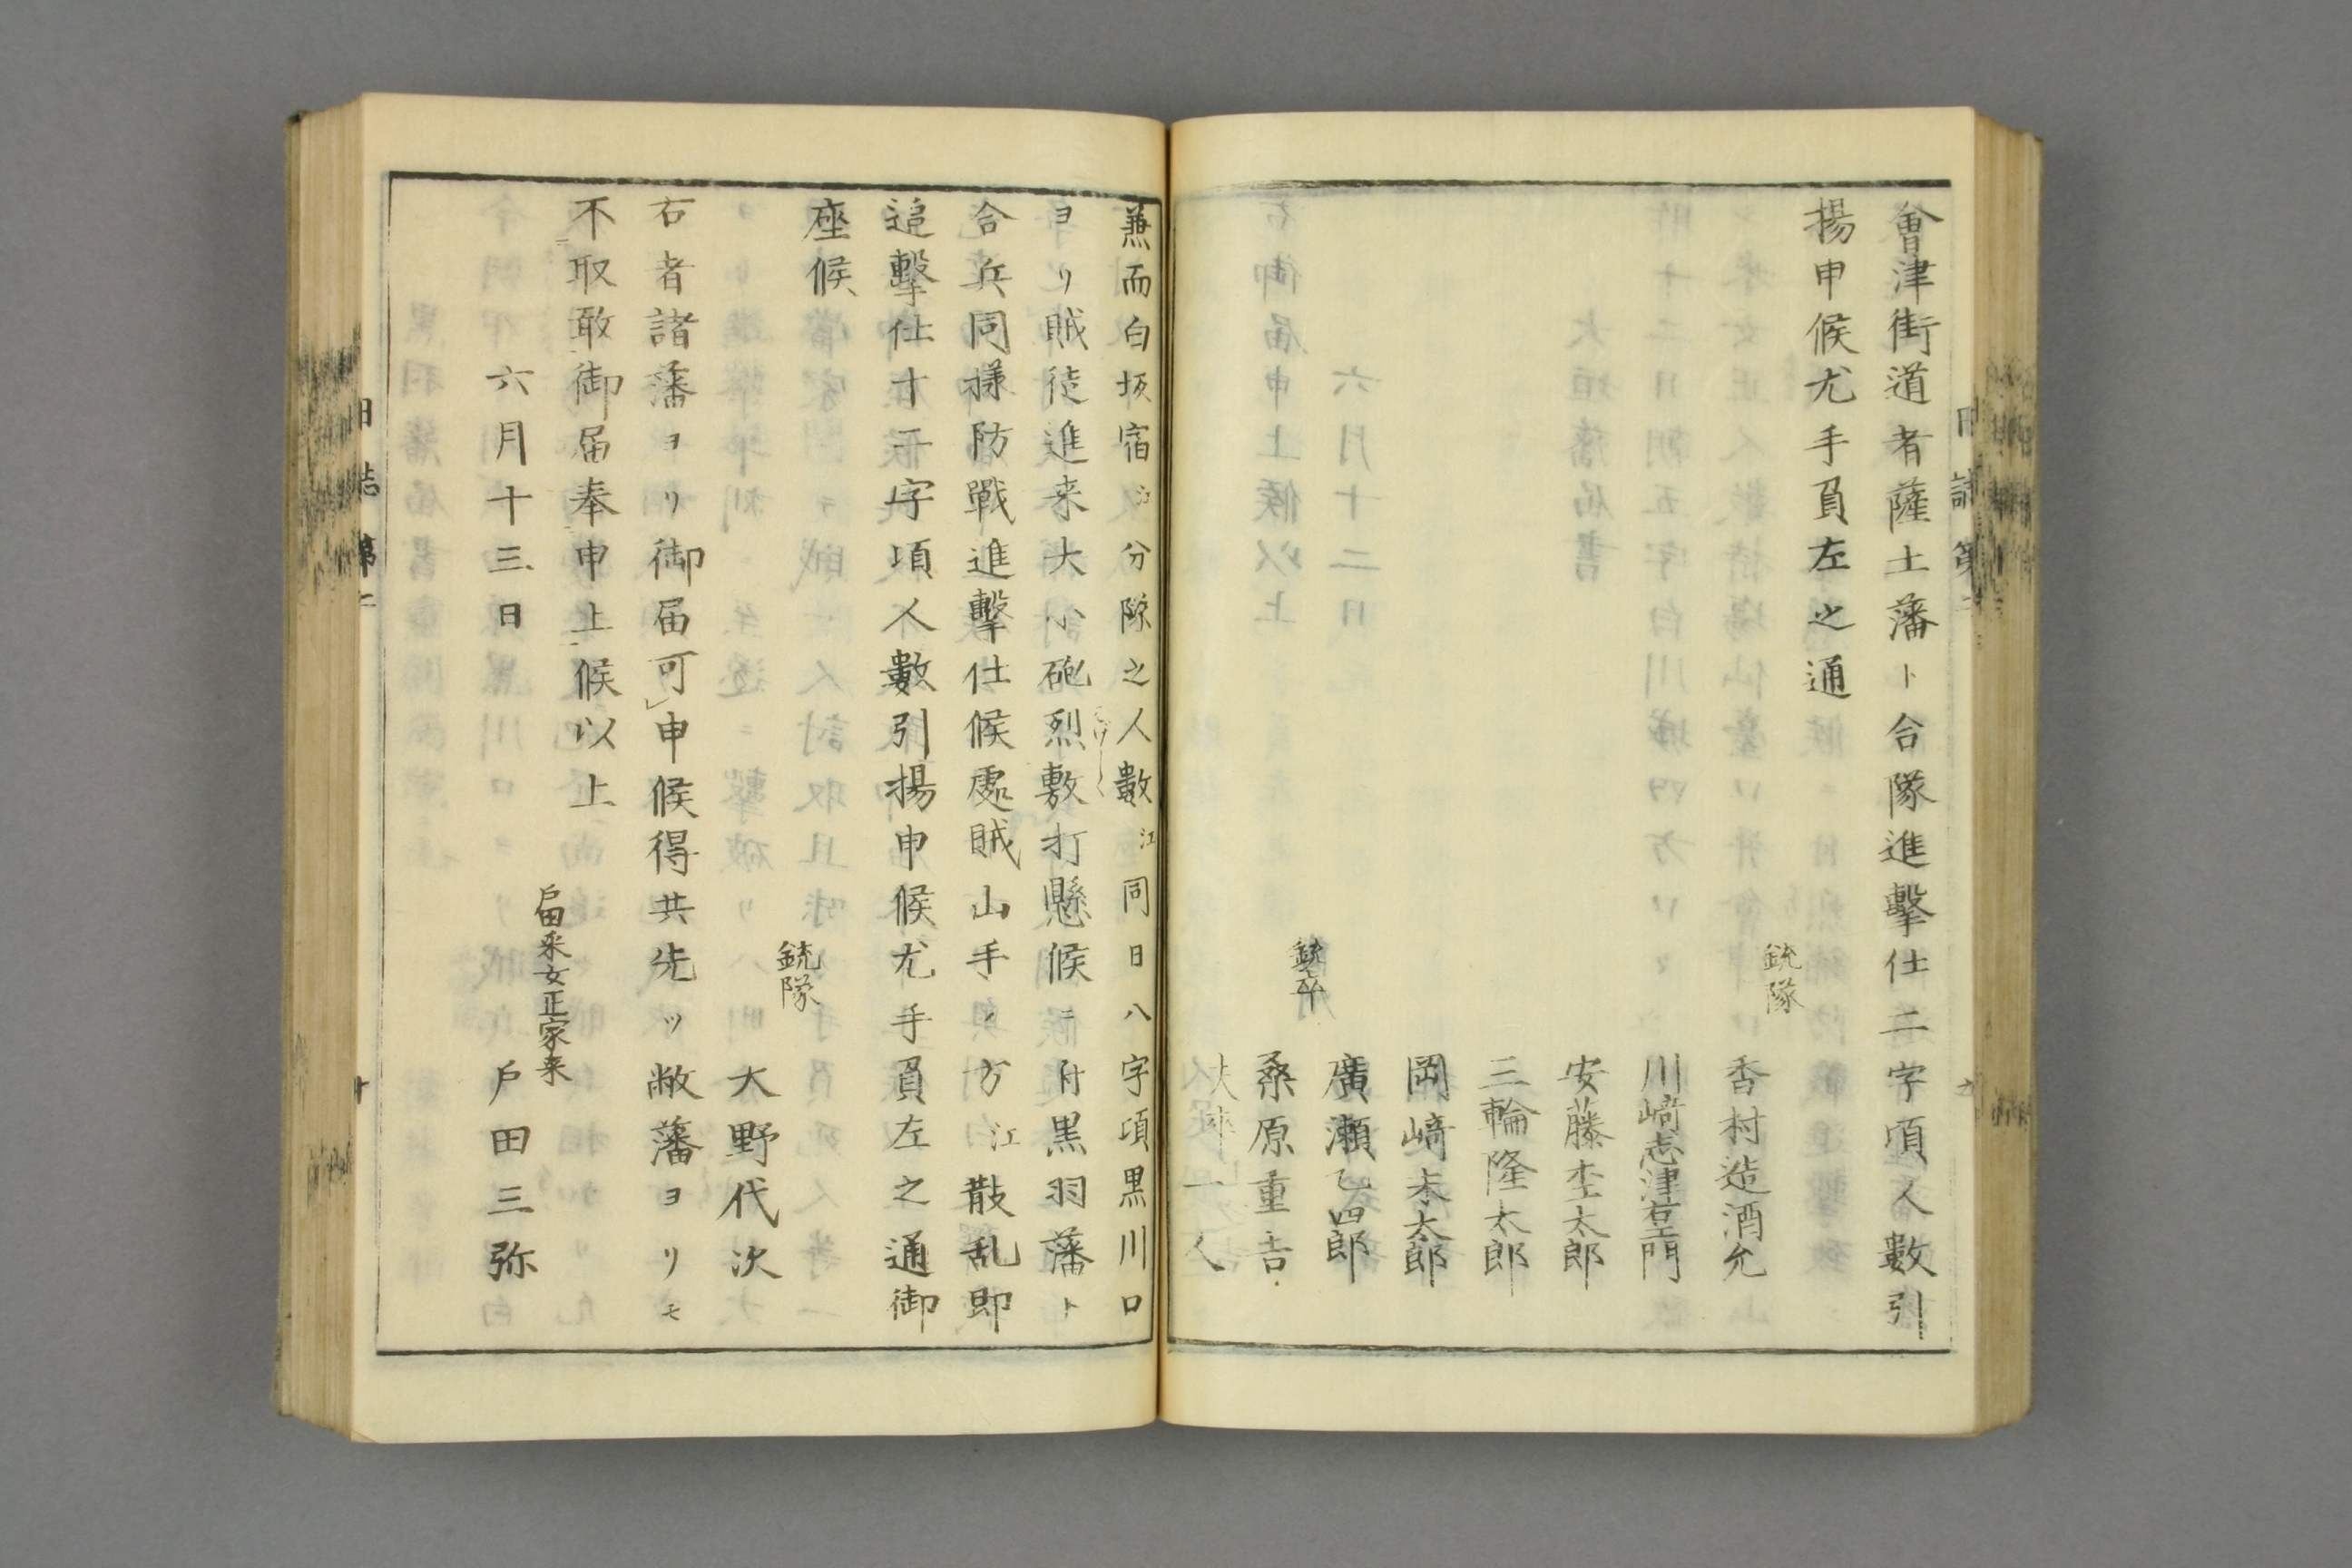 會津街道者薩土藩ト合隊進擊仕二字頃人數引
揚申候尤手負左之通
銃隊
香村造酒允
川﨑志津右衛門
安藤杢太郎
三輪隆太郎
岡﨑末太郎
廣瀬乙四郎
銃卒
桑原重吉
夫卒一人
兼而白坂宿江分隊之人數江同日八字頃黒川口
ヨリ賊徒進来大小砲烈敷打懸候ニ付黒羽藩ト
合兵同様防戰進擊仕候處賊山手ノ方江散乱即
追擊仕十一字頃人數引揚申候尤手負左之通御
座候
銃隊
大野代次
右者諸藩ヨリ御届可申候得共先ツ敝藩ヨリモ
不取敢御届奉申上候以上
戸田采女正家来
六月十三日 戸田三弥
日誌第二
十